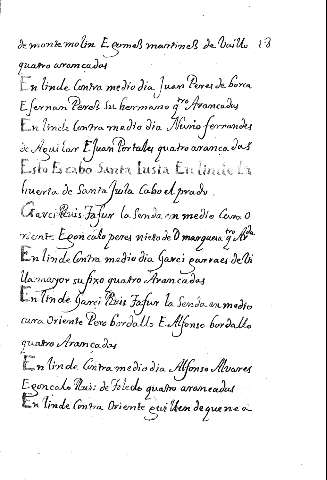 de montemolin E gomes martines de Vaillo 18
quatro arancadas
En linde Contra medio dia Juan Peres de borca
E fernan Peres su hermano q.tro Arancadas
En linde Contra medio dia Nuño fernandes
de Aguilar E Juan Portales quatro arancadas
Esto Es cabo Santa Iusta En linde La
huerta de Santa Justa Cabo el prado.
Garci Ruis Fafur la Senda en medio Cara O
riente E goncalo peres nieto de D marquesa q.ro Ar.das
En linde Contra medio dia Garci
llamayor su fixo quatro Arancadas
En linde Garci Ruis Fafur la Senda en medio
cara Oriente Pero bordallo E Alfonso bordallo
quatro Arancadas
En linde Contra medio dia Alfonso Alvares
E goncalo Ruis de Toledo quatro arancadas
En linde Contra Oriente